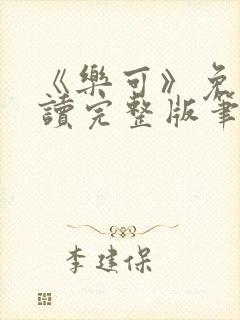 《樂可》免
讀完整版筆
李建保